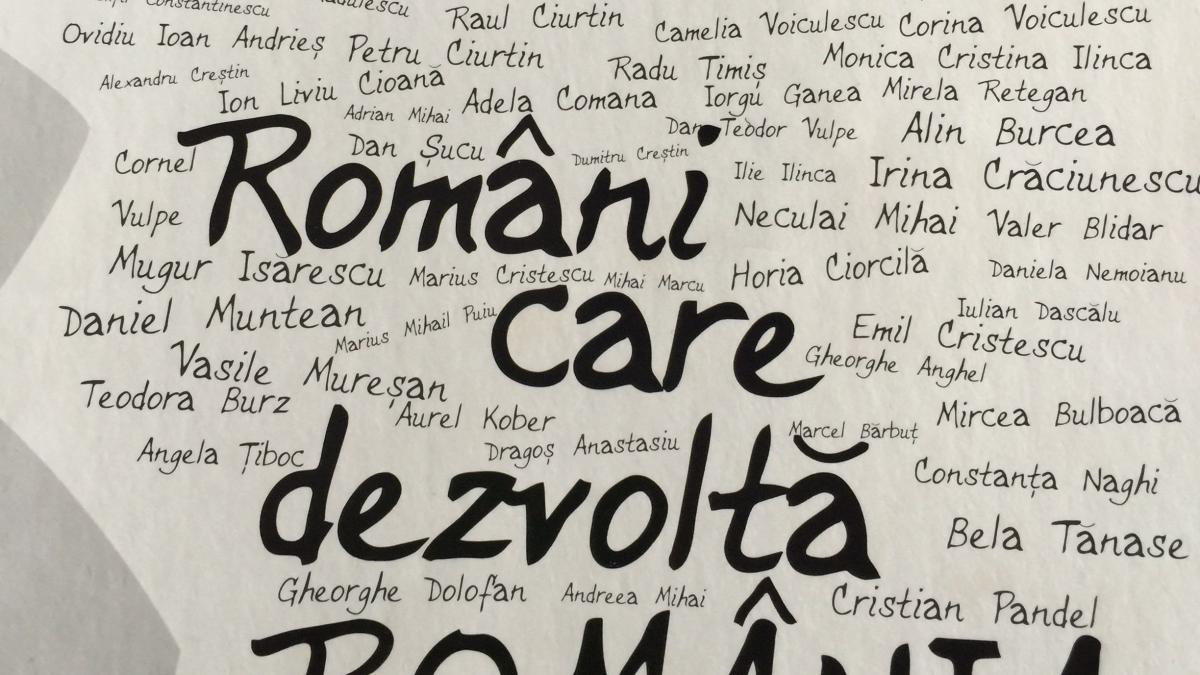 Constantinescu
Raul Ciurtin
Camelia Voiculescu
Corina Voiculescu
Ovidiu Ioan Andrieș
Petru Ciurtin
Radu Timiș
Monica Cristina Ilinca
Alexandru Creștin
Ion Liviu Cioană
Adrian Mihai
Adela Comana
Iorgu Ganea
Mirela Retegan
Dan Teodor Vulpe
Alin Burcea
Cornel
Vulpe
Dan Șucu
Dumitru Creștin
Români
Ilie Ilinca
Irina Crăciunescu
Neculai Mihai
Valer Blidar
Mugur Isărescu
Marius Cristescu
Mihai Marcu
Horia Ciorcilă
Daniela Nemoianu
Daniel Muntean
Marius Mihail Puiu
care
Iulian Dascălu
Emil Cristescu
Gheorghe Anghel
Vasile Mureșan
Teodora Burz
Aurel Kober
Mircea Bulboacă
Angela Țiboc
Dragoș Anastasiu
Marcel Bărbuț
dezvoltă
Constanța Naghi
Bela Tănase
Gheorghe Dolofan
Andreea Mihai
Cristian Pandel
ROMÂNIA